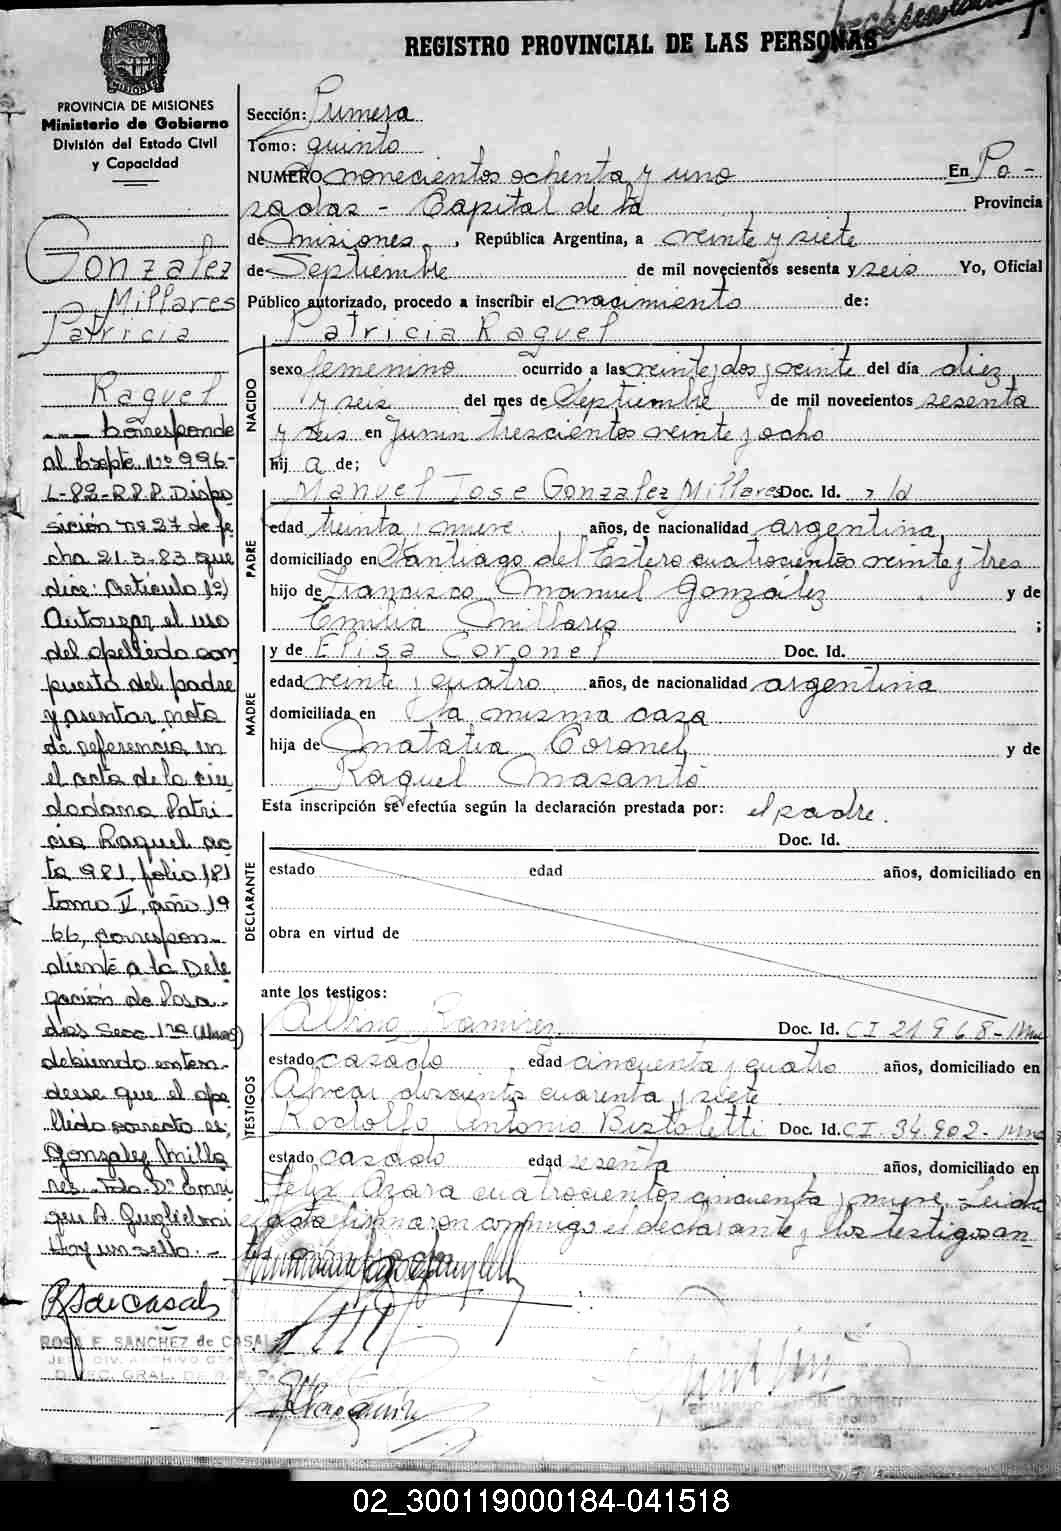 REGISTRO PROVINCIAL DE LAS PERSONAS
PROVINCIA DE MISIONES
Ministerio de Gobierno
División del Estado Civil
y Capacidad
Gonzalez
Millares
Patricia
Raquel
--- Corresponde
al Expte. Nº 996-
L-82-R.P.P. Dispo
sición nº 27 de fe
cha 21-3-83 que
dice: Artículo 1º)
Autorizar el uso
del apellido com
puesto del padre
y asentar nota
de referencia en
el acta de la ciu
dadana Patri-
cia Raquel ac
ta 981, folio 181
tomo V, año 19
66, correspon-
diente a la Dele
gación de Posa-
das Secc. 1ra
debiendo enten-
derse que el ape
llido correcto es:
Gonzalez Milla
res.- Fdo. Dr. Enri
que A. Guglielmi
Hay un sello.-
RSdeCasals
ROSA E. SANCHEZ de CASAL
Sección: Primera
Tomo: quinto
NUMERO novecientos ochenta y uno En Po-
sadas - Capital de la Provincia
de Misiones, República Argentina, a veinte y siete
de Septiembre de mil novecientos sesenta y seis Yo, Oficial
Público autorizado, procedo a inscribir el nacimiento de:
NACIDO
Patricia Raquel
sexo femenino ocurrido a las veinte y dos y veinte del día diez
y seis del mes de Septiembre de mil novecientos sesenta
y seis en Junin trescientos veinte y ocho
hij a de;
PADRE
Manuel Jose Gonzalez Millares Doc. Id.
edad treinta y nueve años, de nacionalidad argentina
domiciliado en Santiago del Estero cuatrocientos veinte y tres
hijo de Francisco Manuel González y de
Emilia Millares ;
MADRE
y de Elisa Coronel Doc. Id.
edad veinte y cuatro años, de nacionalidad argentina
domiciliada en la misma casa
hija de Natalia Coronel y de
Raquel Masantó
Esta inscripción se efectúa según la declaración prestada por: el padre.
DECLARANTE
Doc. Id.
estado edad años, domiciliado en
obra en virtud de
ante los testigos:
TESTIGOS
Albino Ramirez Doc. Id. CI 21968-
estado casado edad cincuenta y cuatro años, domiciliado en
Alvear doscientos cuarenta y siete
Rodolfo Antonio Bistoletti Doc. Id. CI. 34.902-
estado casado edad sesenta años, domiciliado en
Felix Azara cuatrocientos cincuenta y nueve - Leida
el acta firmaron conmigo el declarante y los testigos an-
tes nombrados
02_300119000184-041518